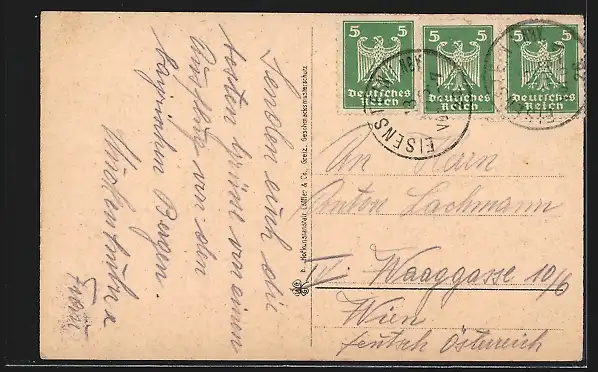 Senden euch die
besten Grüße von einem
Ausflug von den
bayrischen Bergen.
Franz
Hofkunstanstalt Löffler & Co., Greiz. Geschmacksmusterschutz
5 5
Deutsches
Reich
5 5
Deutsches
Reich
5 5
Deutsches
Reich
An Herrn
Anton Lachmann
IV. Waaggasse 10/6
Wien
deutsch Österreich